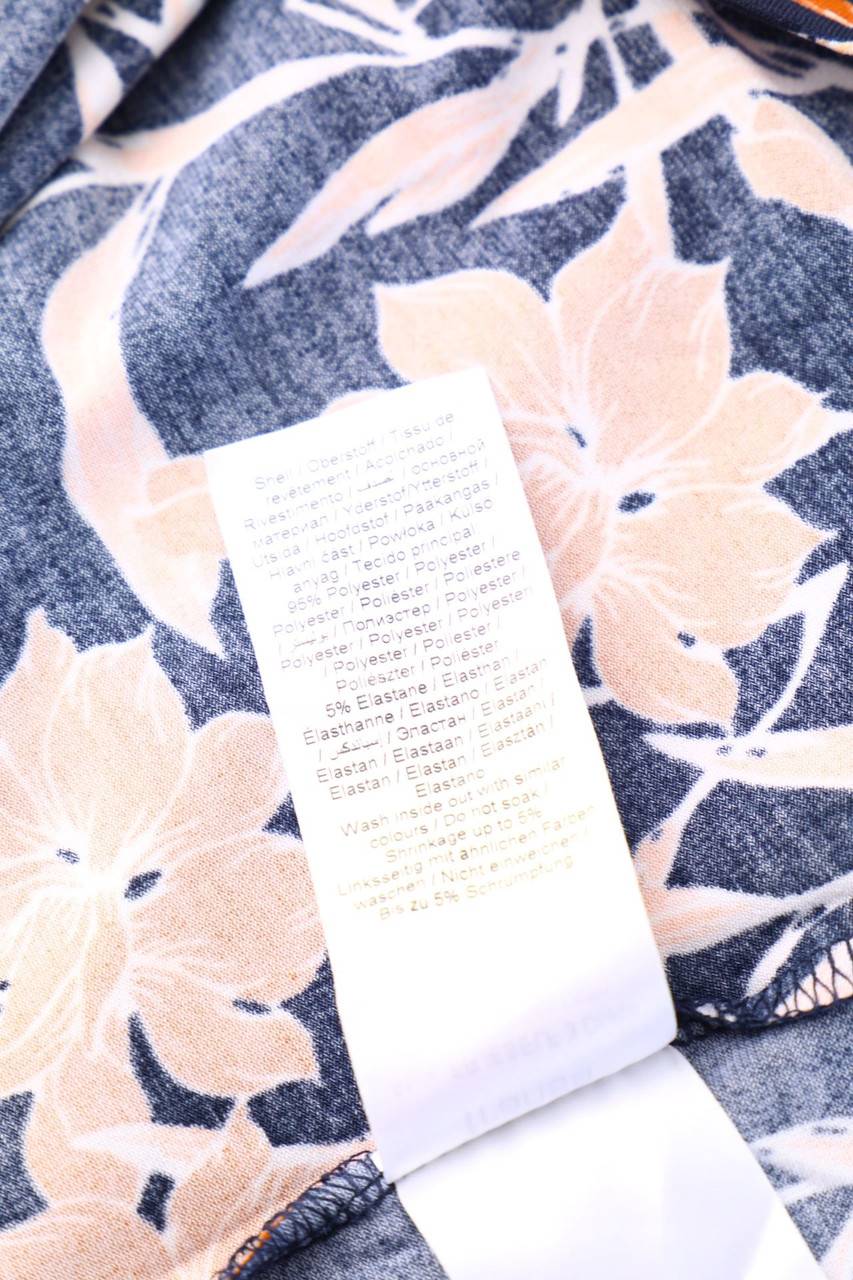 Shell / Oberstoff / Tissu de
revetement / Acolchado /
Rivestimento / صدف / основной
материал / Yderstof/Ytterstoff /
Utsida / Hoofdstof / Paakangas /
Hlavní část / Powłoka / Külső
anyag / Tecido principal
95% Polyester / Polyester /
Polyester / Poliéster / Poliestere
/ بوليستر / Полиэстер / Polyester /
Polyester / Polyester / Polyesteri
/ Polyester / Poliester /
Poliészter / Poliéster
5% Elastane / Elasthan /
Élasthanne / Elastano / Elastan
/ إيلاستين / Эластан / Elastan /
Elastan / Elastaan / Elastaani /
Elastan / Elastan / Elasztán /
Elastano
Wash inside out with similar
colours / Do not soak /
Shrinkage up to 5%
Linksseitig mit ähnlichen Farben
waschen / Nicht einweichen /
Bis zu 5% Schrumpfung